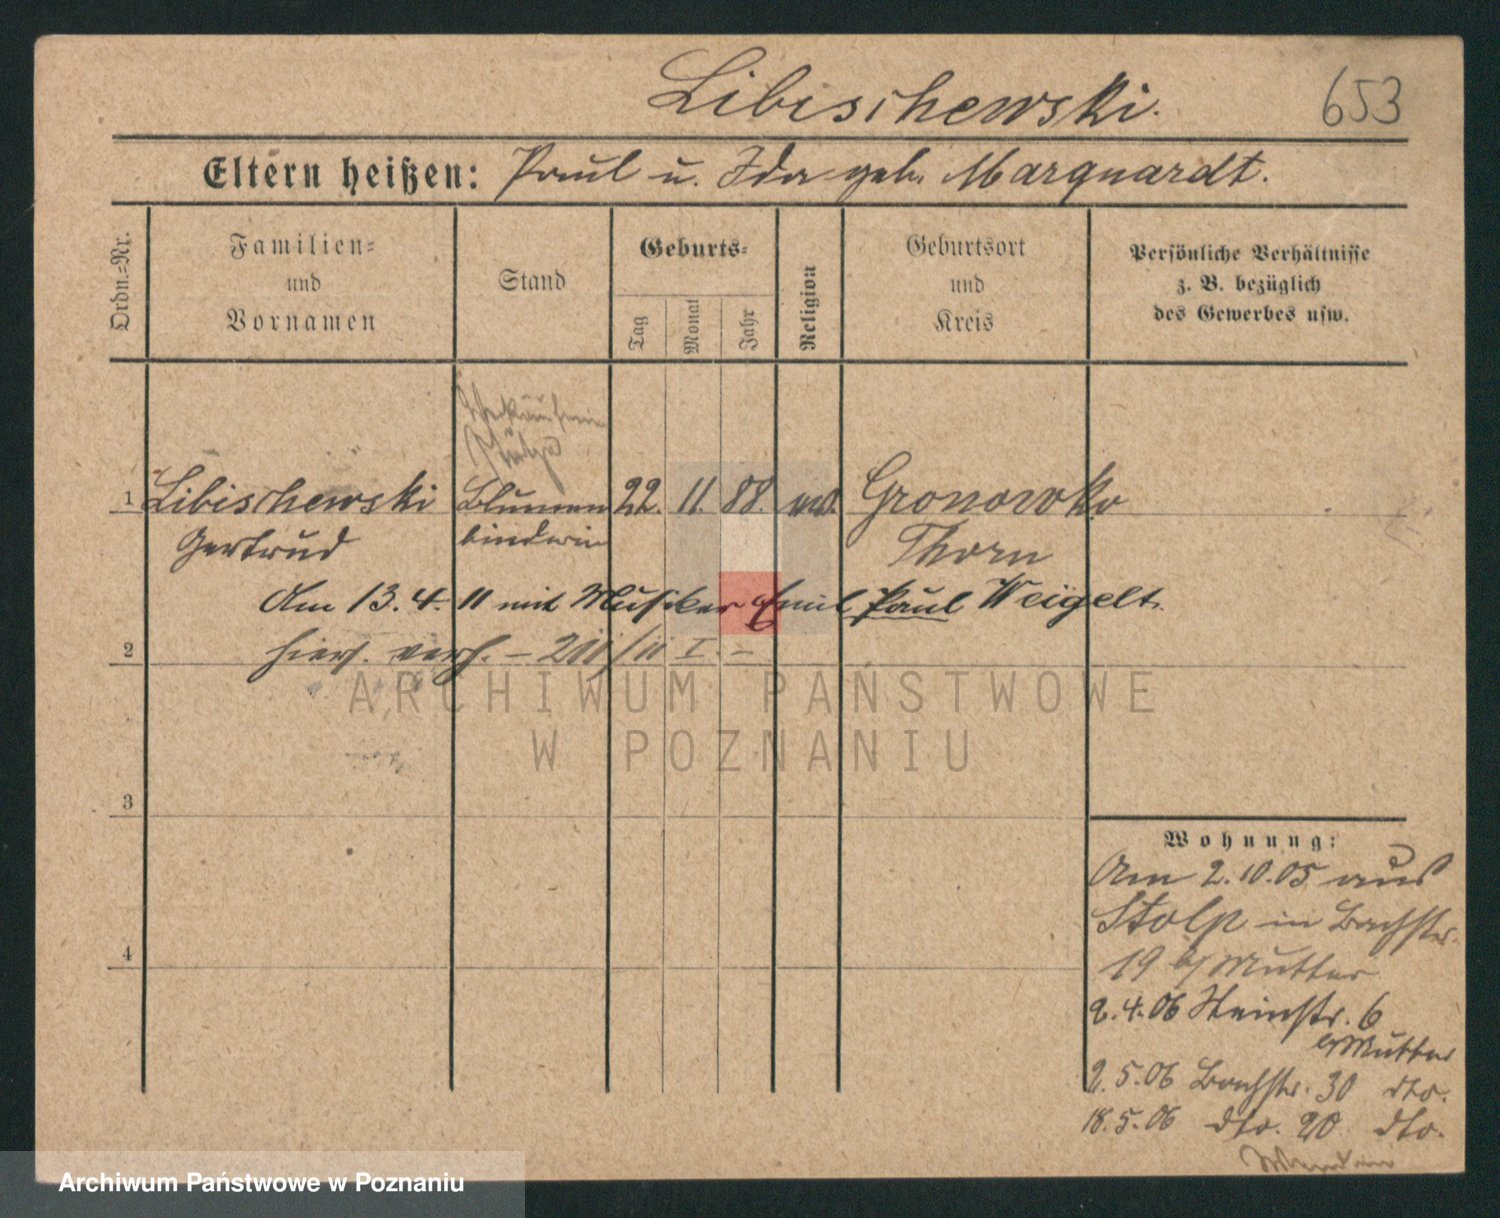 Libischewski.
653
Eltern heißen: Paul u. Ida geb. Marquardt.
Ordn.=Nr.
Familien=
und
Vornamen
Stand
Geburts=
Tag
Monat
Jahr
Religion
Geburtsort
und
Kreis
Persönliche Verhältnisse
z. B. bezüglich
des Gewerbes usw.
1 Libischewski Blumen 22. 11. 88. Gronowko
Gertrud binderin Thorn
Am 13.4.11 mit Musiker Emil Paul Weigelt
2 hiers. verh. –
ARCHIWUM PAŃSTWOWE
W POZNANIU
3
Wohnung:
Am 2.10.05 aus
Stolp in Bachstr.
4
19 b/Mutter
2.4.06 Steinstr. 6
b/Mutter
2.5.06 Bachstr. 30 dto.
18.5.06 dto. 20 dto.
Archiwum Państwowe w Poznaniu